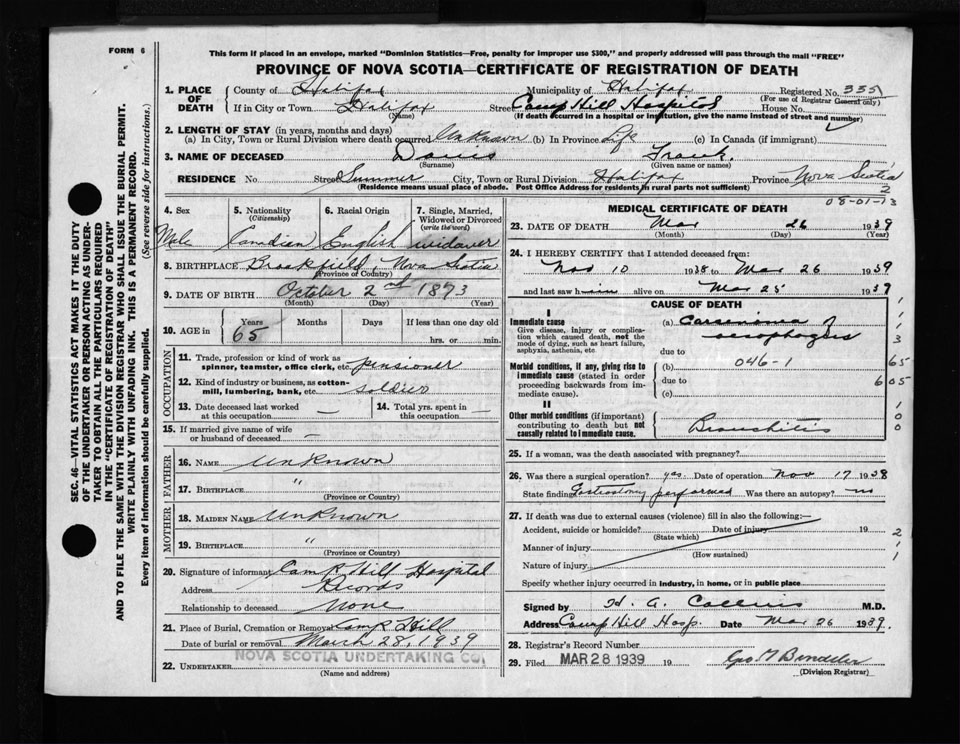 FORM 6
This form if placed in an envelope, marked "Dominion Statistics—Free, penalty for improper use $300," and properly addressed will pass through the mail "FREE"
PROVINCE OF NOVA SCOTIA—CERTIFICATE OF REGISTRATION OF DEATH
1. PLACE OF DEATH County of Halifax Municipality of Halifax Registered No. 335
(For use of Registrar General only)
If in City or Town Halifax Street Camp Hill Hospital House No.
(Name) (If death occurred in a hospital or institution, give the name instead of street and number)
2. LENGTH OF STAY (in years, months and days)
(a) In City, Town or Rural Division where death occurred Unknown (b) In Province Life (c) In Canada (if immigrant)
3. NAME OF DECEASED Davis Frank.
(Surname) (Given name or names)
RESIDENCE No Street Summer City, Town or Rural Division Halifax Province Nova Scotia
(Residence means usual place of abode. Post Office Address for residents in rural parts not sufficient)
2
08-01-13
4. Sex 5. Nationality (Citizenship) 6. Racial Origin 7. Single, Married, Widowed or Divorced (write the word)
Male Canadian English widower
8. BIRTHPLACE Brookfield, Nova Scotia
(Province or Country)
9. DATE OF BIRTH October 2nd 1873
(Month) (Day) (Year)
10. AGE in Years Months Days If less than one day old
65 hrs. or min.
OCCUPATION
11. Trade, profession or kind of work as spinner, teamster, office clerk, etc. pensioner
12. Kind of industry or business, as cotton-mill, lumbering, bank, etc. soldier
13. Date deceased last worked at this occupation — 14. Total yrs. spent in this occupation —
15. If married give name of wife or husband of deceased —
FATHER
16. NAME Unknown
17. BIRTHPLACE "
(Province or Country)
MOTHER
18. MAIDEN NAME Unknown
19. BIRTHPLACE "
(Province or Country)
20. Signature of informant Camp Hill Hospital
Address Records
Relationship to deceased None
21. Place of Burial, Cremation or Removal Camp Hill
Date of burial or removal March 28, 1939
22. UNDERTAKER NOVA SCOTIA UNDERTAKING CO.
(Name and address)
MEDICAL CERTIFICATE OF DEATH
23. DATE OF DEATH Mar 26 1939
(Month) (Day) (Year)
24. I HEREBY CERTIFY that I attended deceased from:
Nov 10 1938 to Mar 26 1939
and last saw him alive on Mar 25 1939
CAUSE OF DEATH
I
Immediate cause
Give disease, injury or complication which caused death, not the mode of dying, such as heart failure, asphyxia, asthenia, etc
(a) Carcinoma of oesophagus
due to
Morbid conditions, if any, giving rise to immediate cause (stated in order proceeding backwards from immediate cause).
(b) 046-1
due to
(c)
II
Other morbid conditions (if important) contributing to death but not causally related to immediate cause.
Bronchitis
1
1
3
65
605
1
0
0
25. If a woman, was the death associated with pregnancy?
26. Was there a surgical operation? yes. Date of operation Nov 17 1938
State finding Gastrostomy performed Was there an autopsy? no
27. If death was due to external causes (violence) fill in also the following:—
Accident, suicide or homicide? Date of injury 19
(State which)
Manner of injury
(How sustained)
Nature of injury
2
1
1
Specify whether injury occurred in industry, in home, or in public place
Signed by H. A. Collins M.D.
Address Camp Hill Hosp. Date Mar 26 1939.
28. Registrar's Record Number
29. Filed MAR 28 1939 19
(Division Registrar)
SEC. 46—VITAL STATISTICS ACT MAKES IT THE DUTY
OF THE UNDERTAKER OR PERSON ACTING AS UNDER-
TAKER TO OBTAIN ALL THE PARTICULARS REQUIRED
IN THE "CERTIFICATE OF REGISTRATION OF DEATH"
AND TO FILE THE SAME WITH THE DIVISION REGISTRAR WHO SHALL ISSUE THE BURIAL PERMIT.
WRITE PLAINLY WITH UNFADING INK. THIS IS A PERMANENT RECORD.
Every item of information should be carefully supplied. (See reverse side for instructions.)